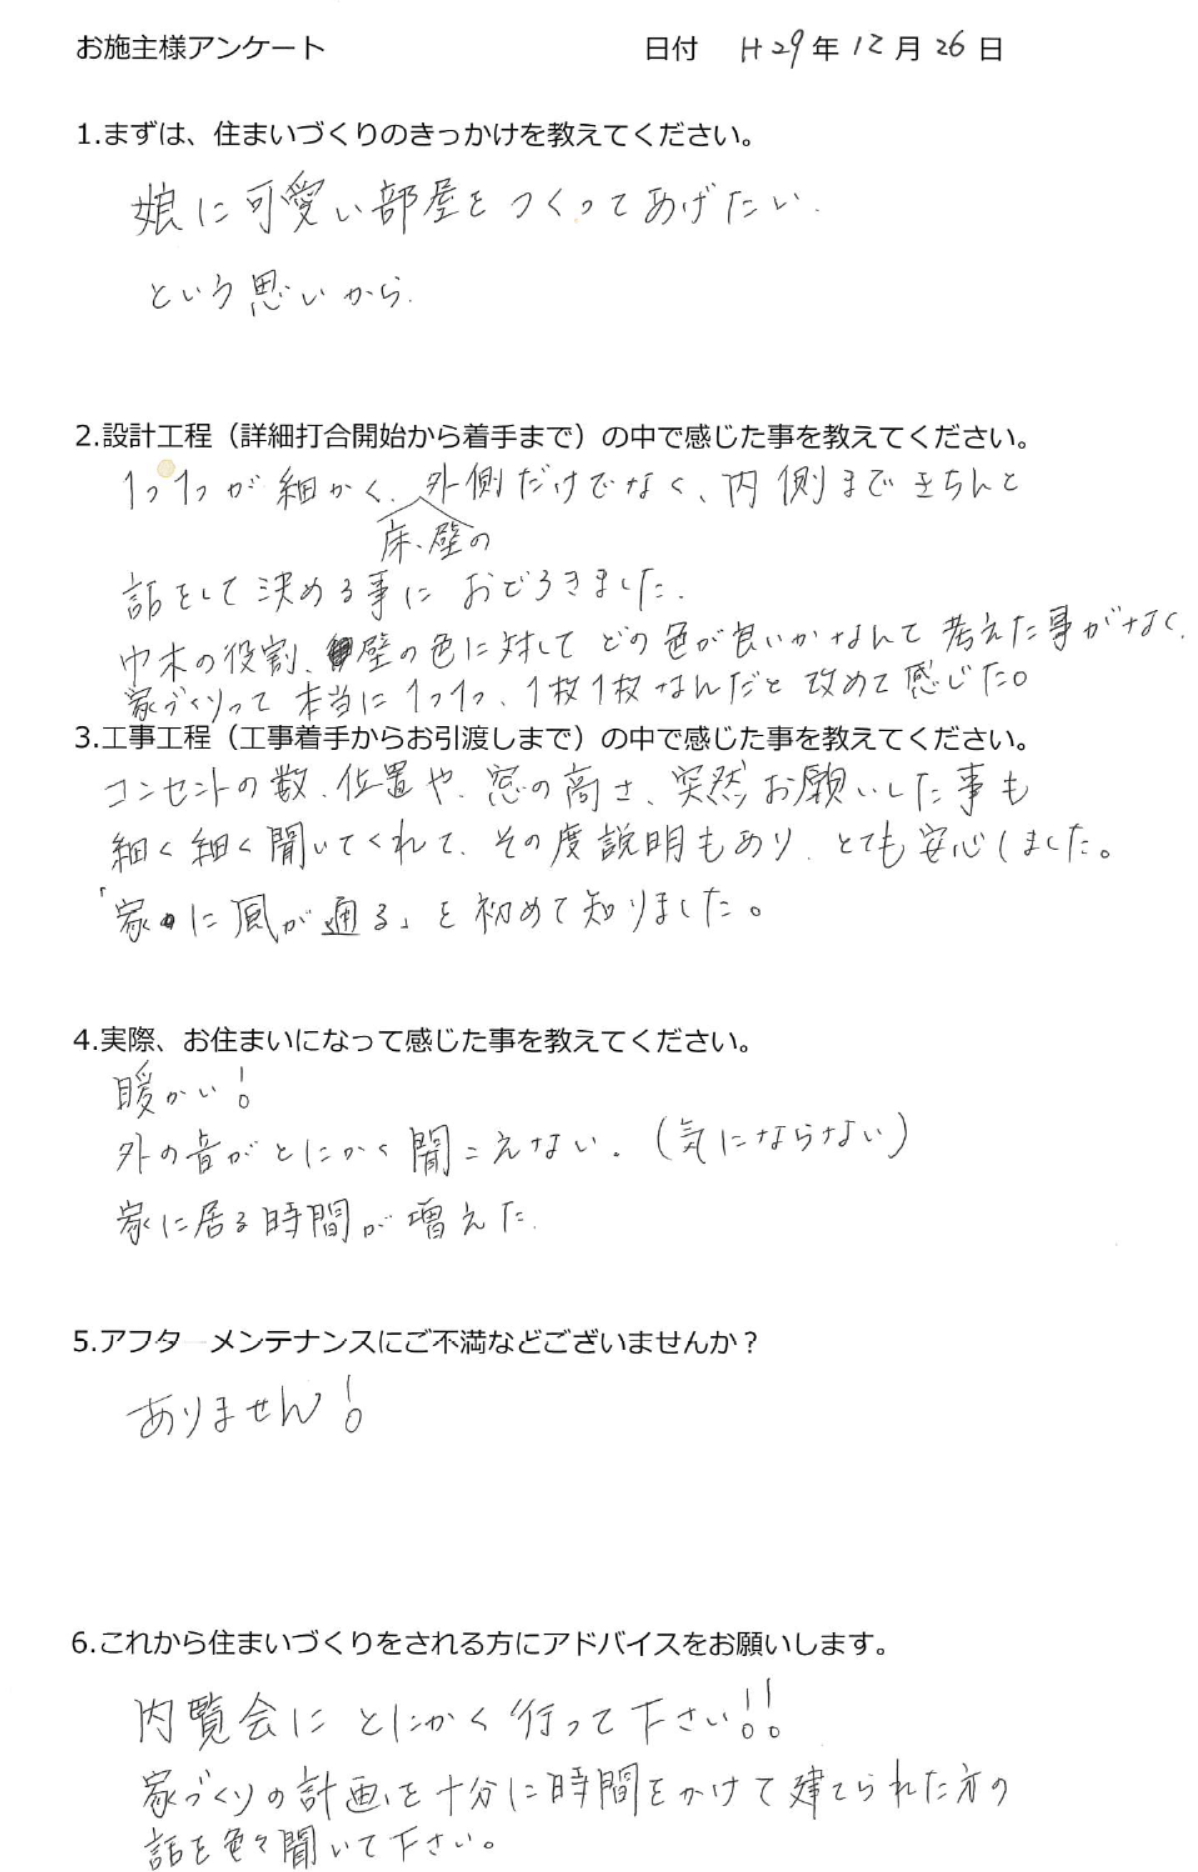 お施主様アンケート 日付 H29年12月26日
1.まずは、住まいづくりのきっかけを教えてください。
娘に可愛い部屋をつくってあげたい.
という思いから.
2.設計工程（詳細打合開始から着手まで）の中で感じた事を教えてください。
1つ1つが細かく、外側だけでなく、内側まできちんと
床、壁の
話をして決める事におどろきました.
巾木の役割、壁の色に対してどの色が良いかなんて考えた事がなく、
家づくりって本当に1つ1つ、1枚1枚なんだと改めて感じた。
3.工事工程（工事着手からお引渡しまで）の中で感じた事を教えてください。
コンセントの数、位置や、窓の高さ、突然お願いした事も
細く細く聞いてくれて、その度説明もあり、とても安心しました。
「家に風が通る」を初めて知りました。
4.実際、お住まいになって感じた事を教えてください。
暖かい！
外の音がとにかく聞こえない.（気にならない）
家に居る時間が増えた.
5.アフターメンテナンスにご不満などございませんか？
ありません！
6.これから住まいづくりをされる方にアドバイスをお願いします。
内覧会にとにかく行って下さい！！
家づくりの計画を十分に時間をかけて建てられた方の
話を色々聞いて下さい。